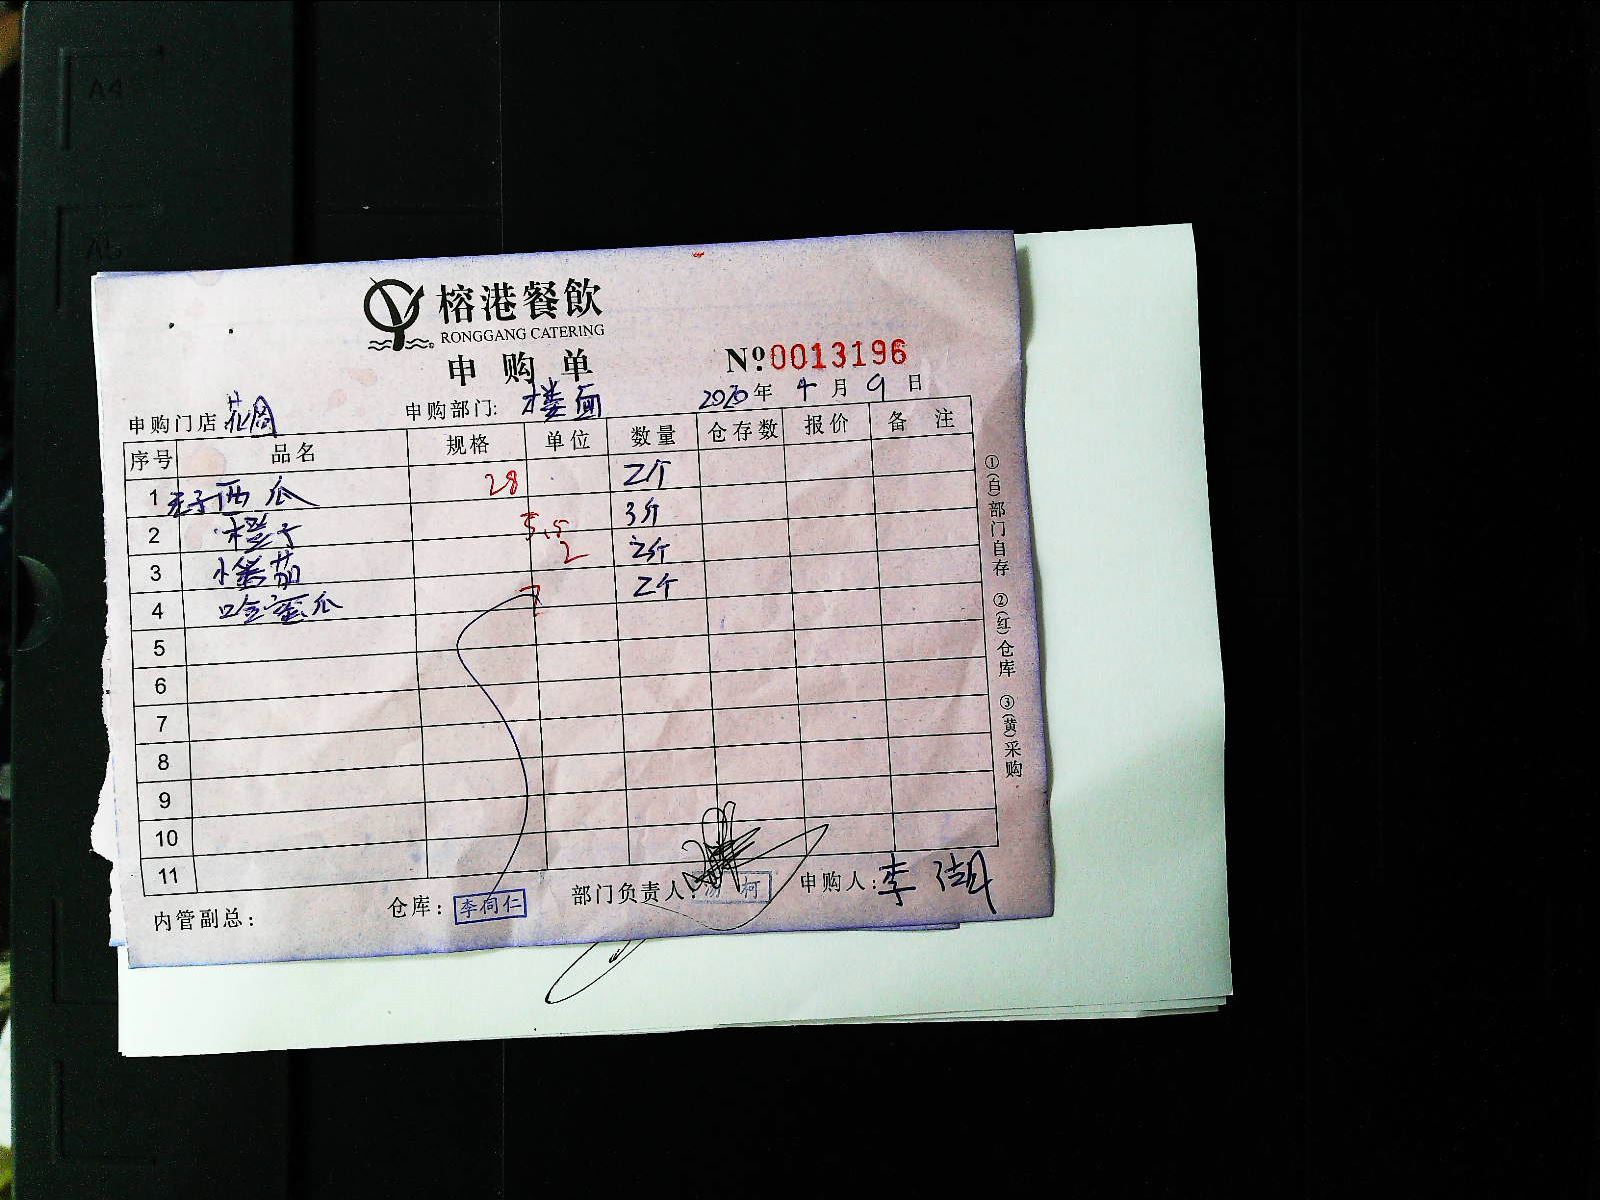 A4
A5
榕港餐飲
RONGGANG CATERING
申购单
№:0013196
申购门店: 申购部门: 楼面 2020年4月9日
序号 品名 规格 单位 数量 仓存数 报价 备注
1 无子西瓜 28 2个
2 橙子 5.5 3斤
3 小番茄 2 2斤
4 哈蜜瓜 7 2个
5
6
7
8
9
10
11
内管副总: 仓库: 李同仁 部门负责人: 柯 申购人: 李
①(白)部门自存 ②(红)仓库 ③(黄)采购